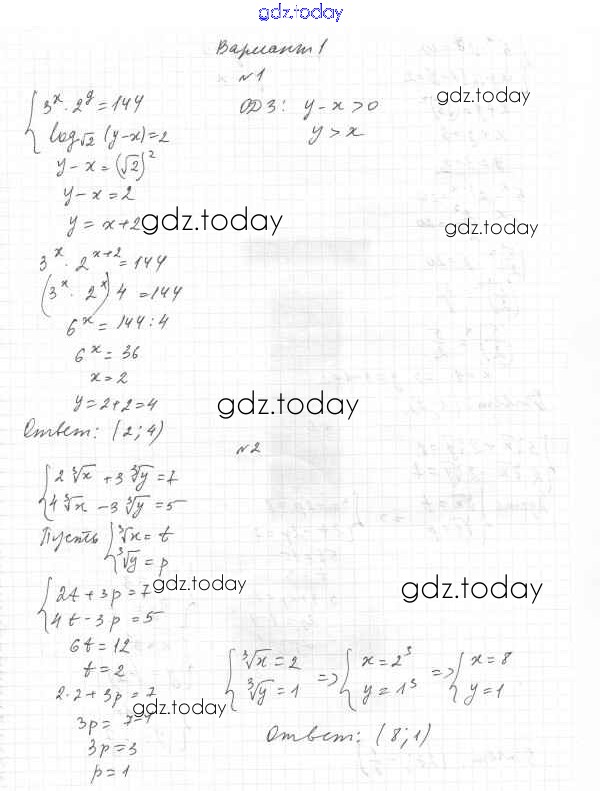 gdz.today
Вариант 1
№1
{ 3^x · 2^y = 144
log_√2 (y-x) = 2
ОДЗ: y-x>0
y>x
gdz.today
y-x = (√2)^2
y-x = 2
y = x+2
gdz.today
gdz.today
3^x · 2^(x+2) = 144
(3^x · 2^x) 4 = 144
6^x = 144:4
6^x = 36
x = 2
y = 2+2 = 4
gdz.today
Ответ: (2; 4)
№2
{ 2∛x + 3∛y = 7
4∛x - 3∛y = 5
Пусть { ∛x = t
∛y = p
{ 2t + 3p = 7
4t - 3p = 5
gdz.today
gdz.today
6t = 12
t = 2
2·2 + 3p = 7
3p = 7-4
3p = 3
p = 1
gdz.today
{ ∛x = 2
∛y = 1
=> { x = 2^3
y = 1^3
=> { x = 8
y = 1
Ответ: (8; 1)